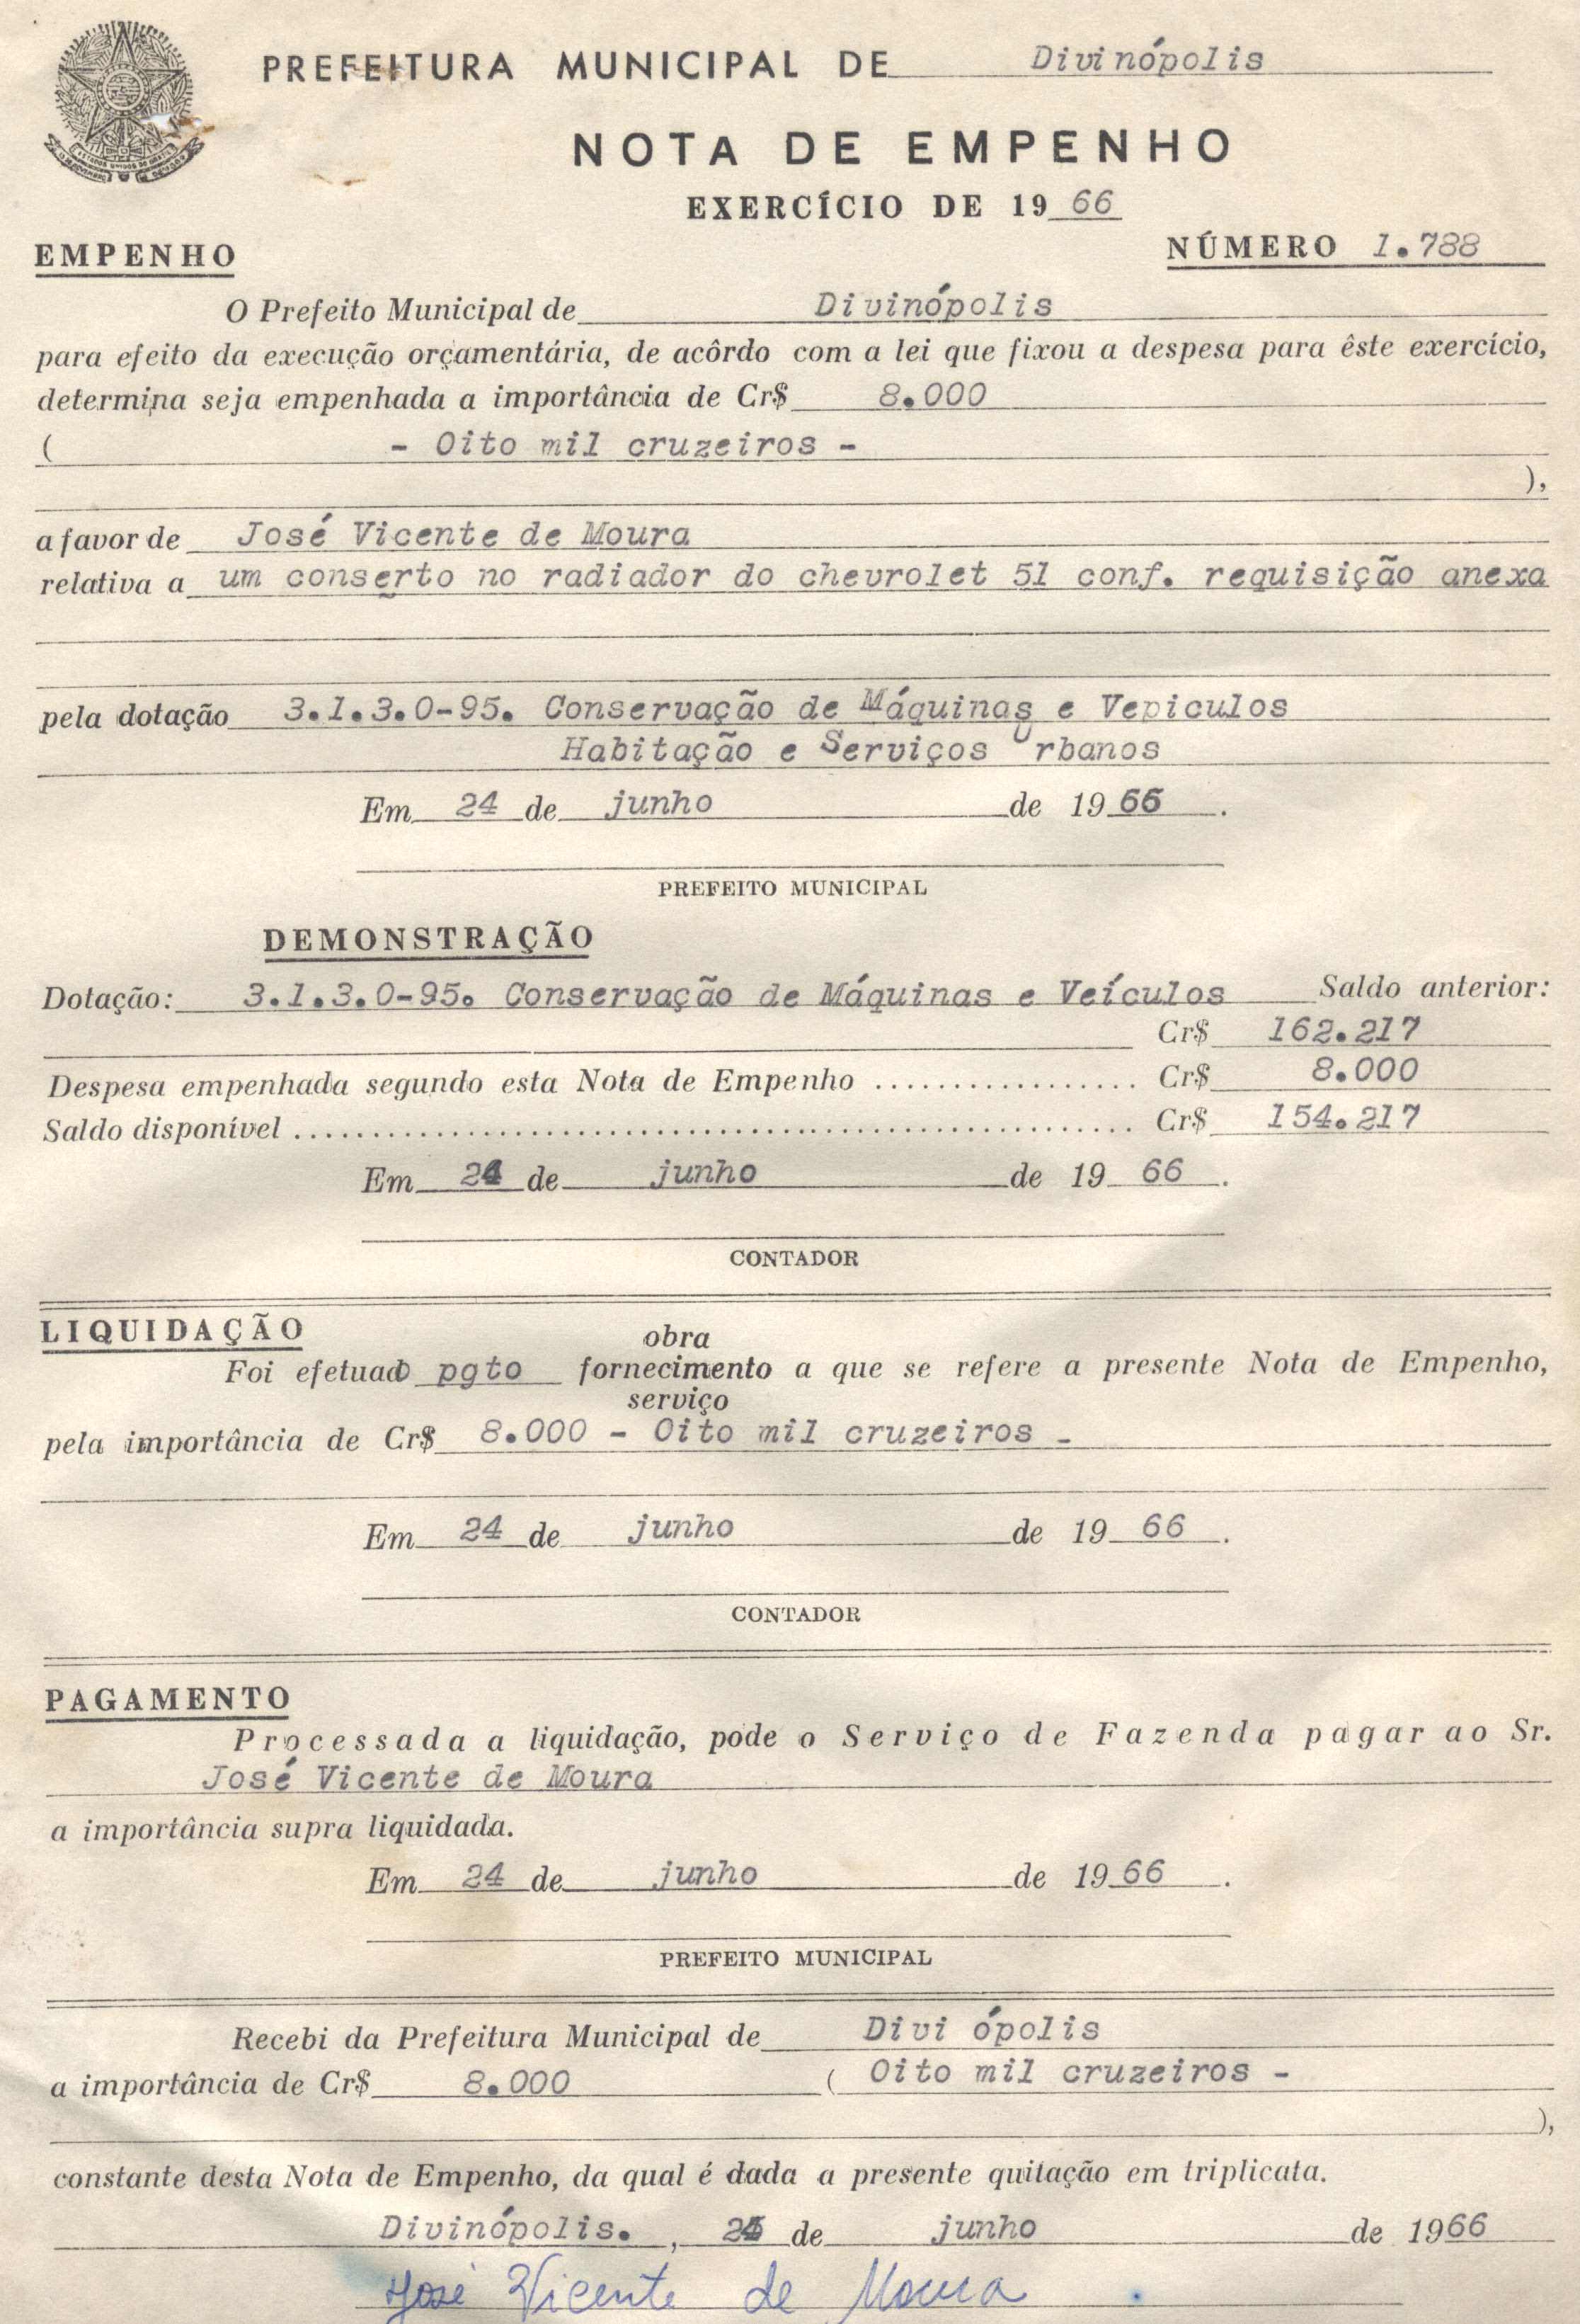 PREFEITURA MUNICIPAL DE Divinópolis
NOTA DE EMPENHO
EXERCÍCIO DE 19 66
EMPENHO
NÚMERO 1.788
O Prefeito Municipal de Divinópolis
para efeito da execução orçamentária, de acôrdo com a lei que fixou a despesa para êste exercício,
determina seja empenhada a importância de Cr$ 8.000
( - Oito mil cruzeiros -
),
a favor de José Vicente de Moura
relativa a um conserto no radiador do chevrolet 51 conf. requisição anexa
pela dotação 3.1.3.0-95. Conservação de Máquinas e Vepiculos
Habitação e Serviços Urbanos
Em 24 de junho de 19 66 .
PREFEITO MUNICIPAL
DEMONSTRAÇÃO
Dotação: 3.1.3.0-95. Conservação de Máquinas e Veículos Saldo anterior:
Cr$ 162.217
Despesa empenhada segundo esta Nota de Empenho ................. Cr$ 8.000
Saldo disponível ...................................................... Cr$ 154.217
Em 24 de junho de 19 66 .
CONTADOR
LIQUIDAÇÃO
obra
Foi efetuado pgto fornecimento a que se refere a presente Nota de Empenho,
serviço
pela importância de Cr$ 8.000 - Oito mil cruzeiros -
Em 24 de junho de 19 66 .
CONTADOR
PAGAMENTO
Processada a liquidação, pode o Serviço de Fazenda pagar ao Sr.
José Vicente de Moura
a importância supra liquidada.
Em 24 de junho de 19 66 .
PREFEITO MUNICIPAL
Recebi da Prefeitura Municipal de Divi ópolis
a importância de Cr$ 8.000 ( Oito mil cruzeiros -
),
constante desta Nota de Empenho, da qual é dada a presente quitação em triplicata.
Divinópolis. , de junho de 1966
José Vicente de Moura